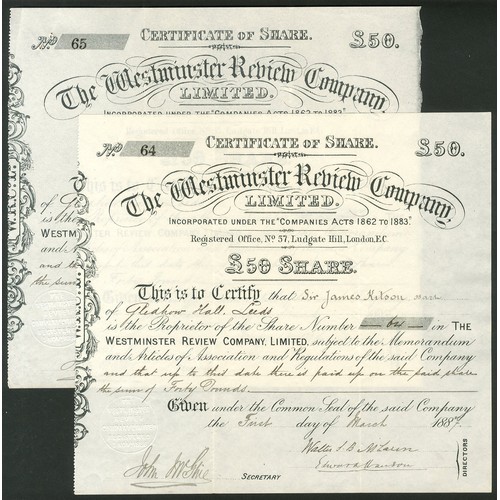 Nº 65 CERTIFICATE OF SHARE. £50.
The Westminster Review Company,
LIMITED.
INCORPORATED UNDER THE "COMPANIES ACTS 1862 TO 1883."
of Gl
is the
WESTM
and
and t
the sum
Nº 64 CERTIFICATE OF SHARE. £50.
The Westminster Review Company,
LIMITED.
INCORPORATED UNDER THE "COMPANIES ACTS 1862 TO 1883."
Registered Office, Nº 57, Ludgate Hill, London, E.C.
£50 SHARE.
This is to Certify that Sir James Kitson
of Gledhow Hall, Leeds
is the Proprietor of the Share Number 64 in THE
WESTMINSTER REVIEW COMPANY, LIMITED, subject to the Memorandum
and Articles of Association and Regulations of the said Company
and that up to this date there is paid up on the said share
the sum of Forty Pounds.
Given under the Common Seal of the said Company
the First day of March 1887.
Walter S. B. McLaren
John
SECRETARY
DIRECTORS